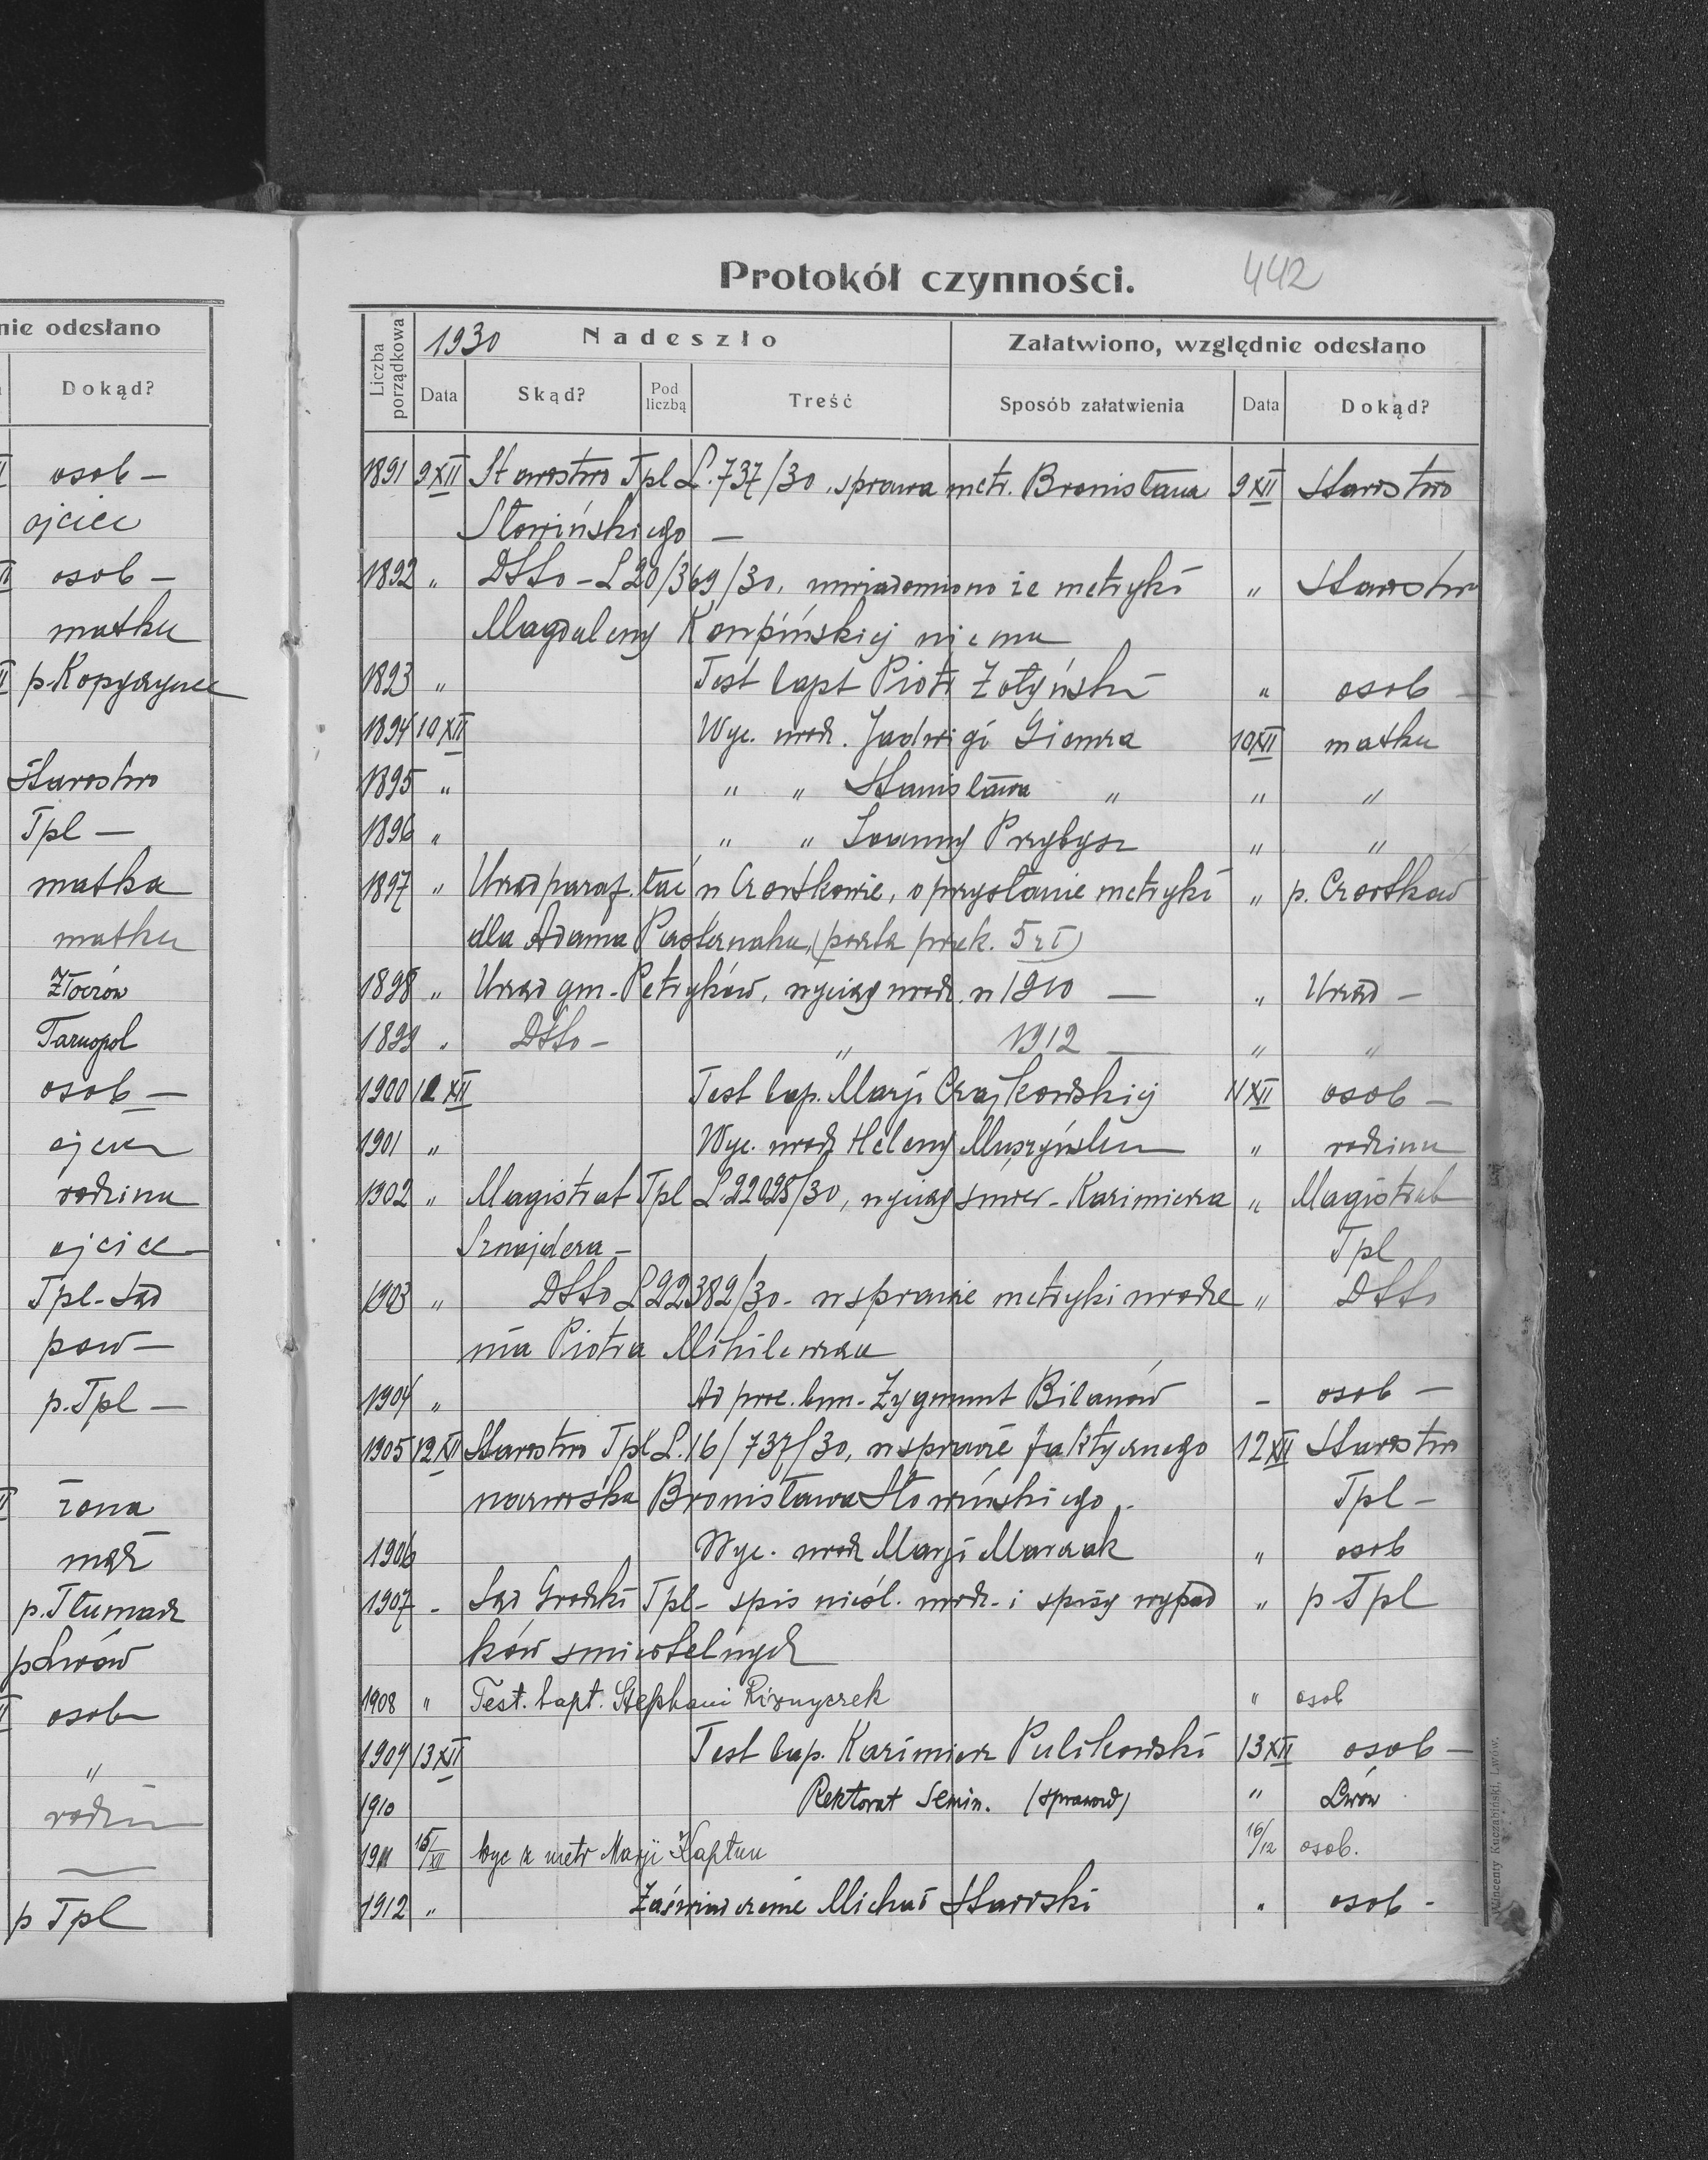 nie odesłano
Dokąd?
osob —
ojciec
osob —
matka
p. Kopyczyńce
Starostwo
Tpl —
matka
matka
Złoczów
Tarnopol
osob —
ojciec
rodzina
ojciec
Tpl - Sąd
pow —
p. Tpl —
żona
mąż
p. Tłumacz
p Lwów
osob
"
rodzin
p Tpl
Protokół czynności. 442
Liczba porządkowa
1930 Nadeszło Załatwiono, względnie odesłano
Data Skąd? Pod liczbą Treść Sposób załatwienia Data Dokąd?
1891 9 XII Starostwo Tpl L. 737/30, sprawa metr. Bronisława 9 XII Starostwo
Słowińskiego —
1892 " Dtto - L 20/369/30, uwiadomiono że metryki " Starostwo
Magdaleny Karpińskiej niema
1893 " Test bapt Piotr Żołyński " osob —
1894 10 XII Wyc. urodz. Jadwigi Giemza 10 XII matka
1895 " " " Stanisława " " "
1896 " " " Joanny Przybysz " "
1897 " Urząd paraf. łać w Czortkowie, o przysłanie metryki " p. Czortków
dla Adama Pasternaka, (poszła przek. 5 zł)
1898 " Urząd gm. Petryków, wyciąg urodz. w 1910 — " Urząd —
1899 " Dtto - " 1912 — " "
1900 11 XII Test bap. Marji Czajkowskiej 11 XII osob —
1901 " Wyc. urodz Heleny Muszyńska " rodzina
1902 " Magistrat Tpl L. 22028/30, wyciąg śmier - Kazimierza " Magistrat
Sznajdera — Tpl
1903 " Dtto L 22382/30 - w sprawie metryki urodze " Dtto
nia Piotra Mihilewza
1904 " Ad proc. bnn. Zygmunt Bilanów - osob —
1905 12 XII Starostwo Tpl L. 16/737/30, w sprawie faktycznego 12 XII Starostwo
nazwiska Bronisława Słowińskiego. Tpl —
1906 Wyc. urodz Marji Marczak " osob
1907 - Sąd Grodzki Tpl - spis nieśl. urodz. i spisy wypad " p Tpl
ków śmiertelnych
1908 " Test. bapt. Stephani Riznyczek " osob
1909 13 XII Test bap. Kazimierz Pulikowski 13 XII osob —
1910 Rektorat Semin. (sprawozd) " Lwów
1911 15/XII wyc z metr Marji Kapłun 16/12 osob.
1912 " Zaświadczenie Michał Starski " osob -
Wincenty Kuczabiński, Lwów.